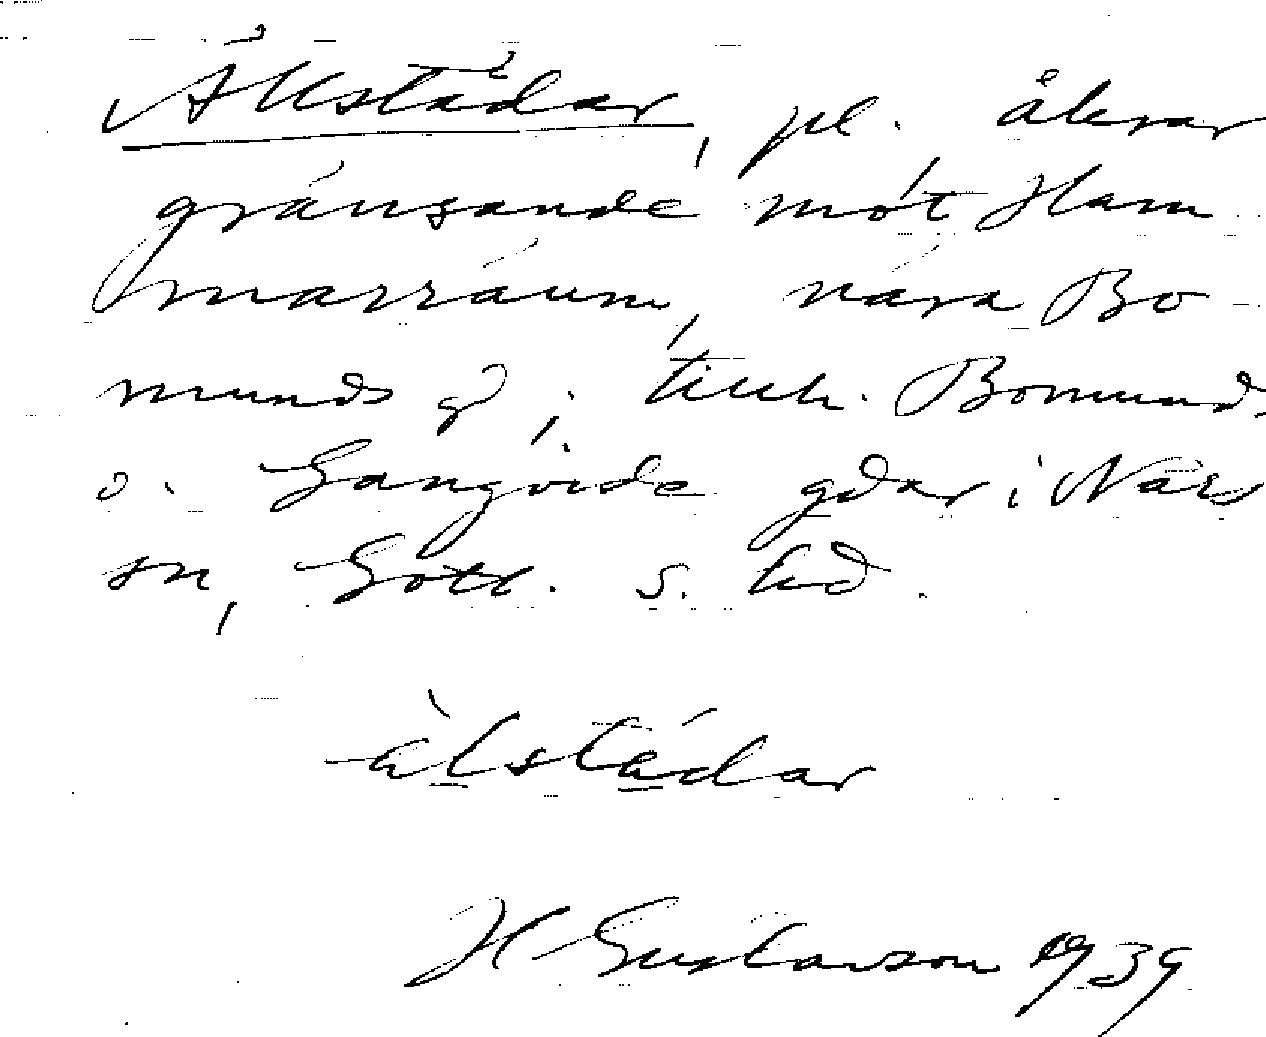 Ällstädar, pl. åkrar
gränsande mot Ham
marräum, nära Bo
munds gd; tillh. Bomunds
o. Gangvide gdar i När
sn, Gotl. s. hd.
älstädar
H Gustavson 1939